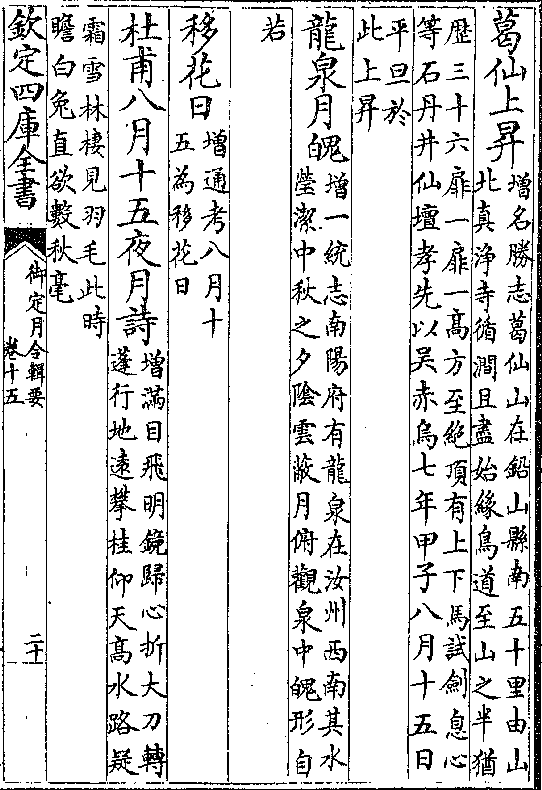 葛仙上昇增名勝志葛仙山在鉛山縣南五十里由山
北真浄寺循澗且盡始緣鳥道至山之半猶
歴三十六扉一扉一高方至絶頂有上下馬試劍息心
等石丹井仙壇孝先以吳赤烏七年甲子八月十五日
平旦於
此上昇
龍泉月魄增一統志南陽府有龍泉在汝州西南其水
瑩潔中秋之夕陰雲蔽月俯觀泉中魄形自
若
移花日增通考八月十
五為移花日
杜甫八月十五夜月詩增滿目飛明鏡歸心折大刀轉
蓬行地遠攀桂仰天髙水路疑
霜雪林棲見羽毛此時
瞻白兔直欲數秋毫
欽定四庫全書
御定月令輯要
卷十五
二十